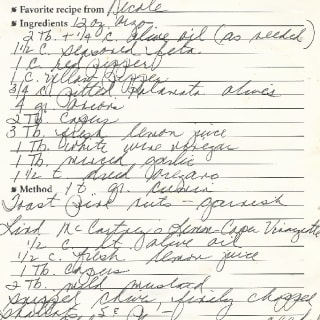 Favorite recipe from Nicole
Ingredients 12 oz. orzo
2 Tb. + 1/4 c. olive oil (as needed)
1 1/2 c. seasoned feta
1 c. red pepper
1 c. yellow pepper
3/4 c. pitted kalamata olives
4 gr. onions
2 Tb. capers
3 Tb. fresh lemon juice
1 Tb. white wine vinegar
1 Tb. minced garlic
1 1/2 t. dried oregano
Method 1 t. gr. cumin
Toast pine nuts - garnish
Lind McCartney's Lemon-Caper Vinaigrette
1/2 c. lt olive oil
1/2 c. fresh lemon juice
1 Tb. capers
2 Tb. mild mustard
snipped chives, finely chopped
shallots, s &